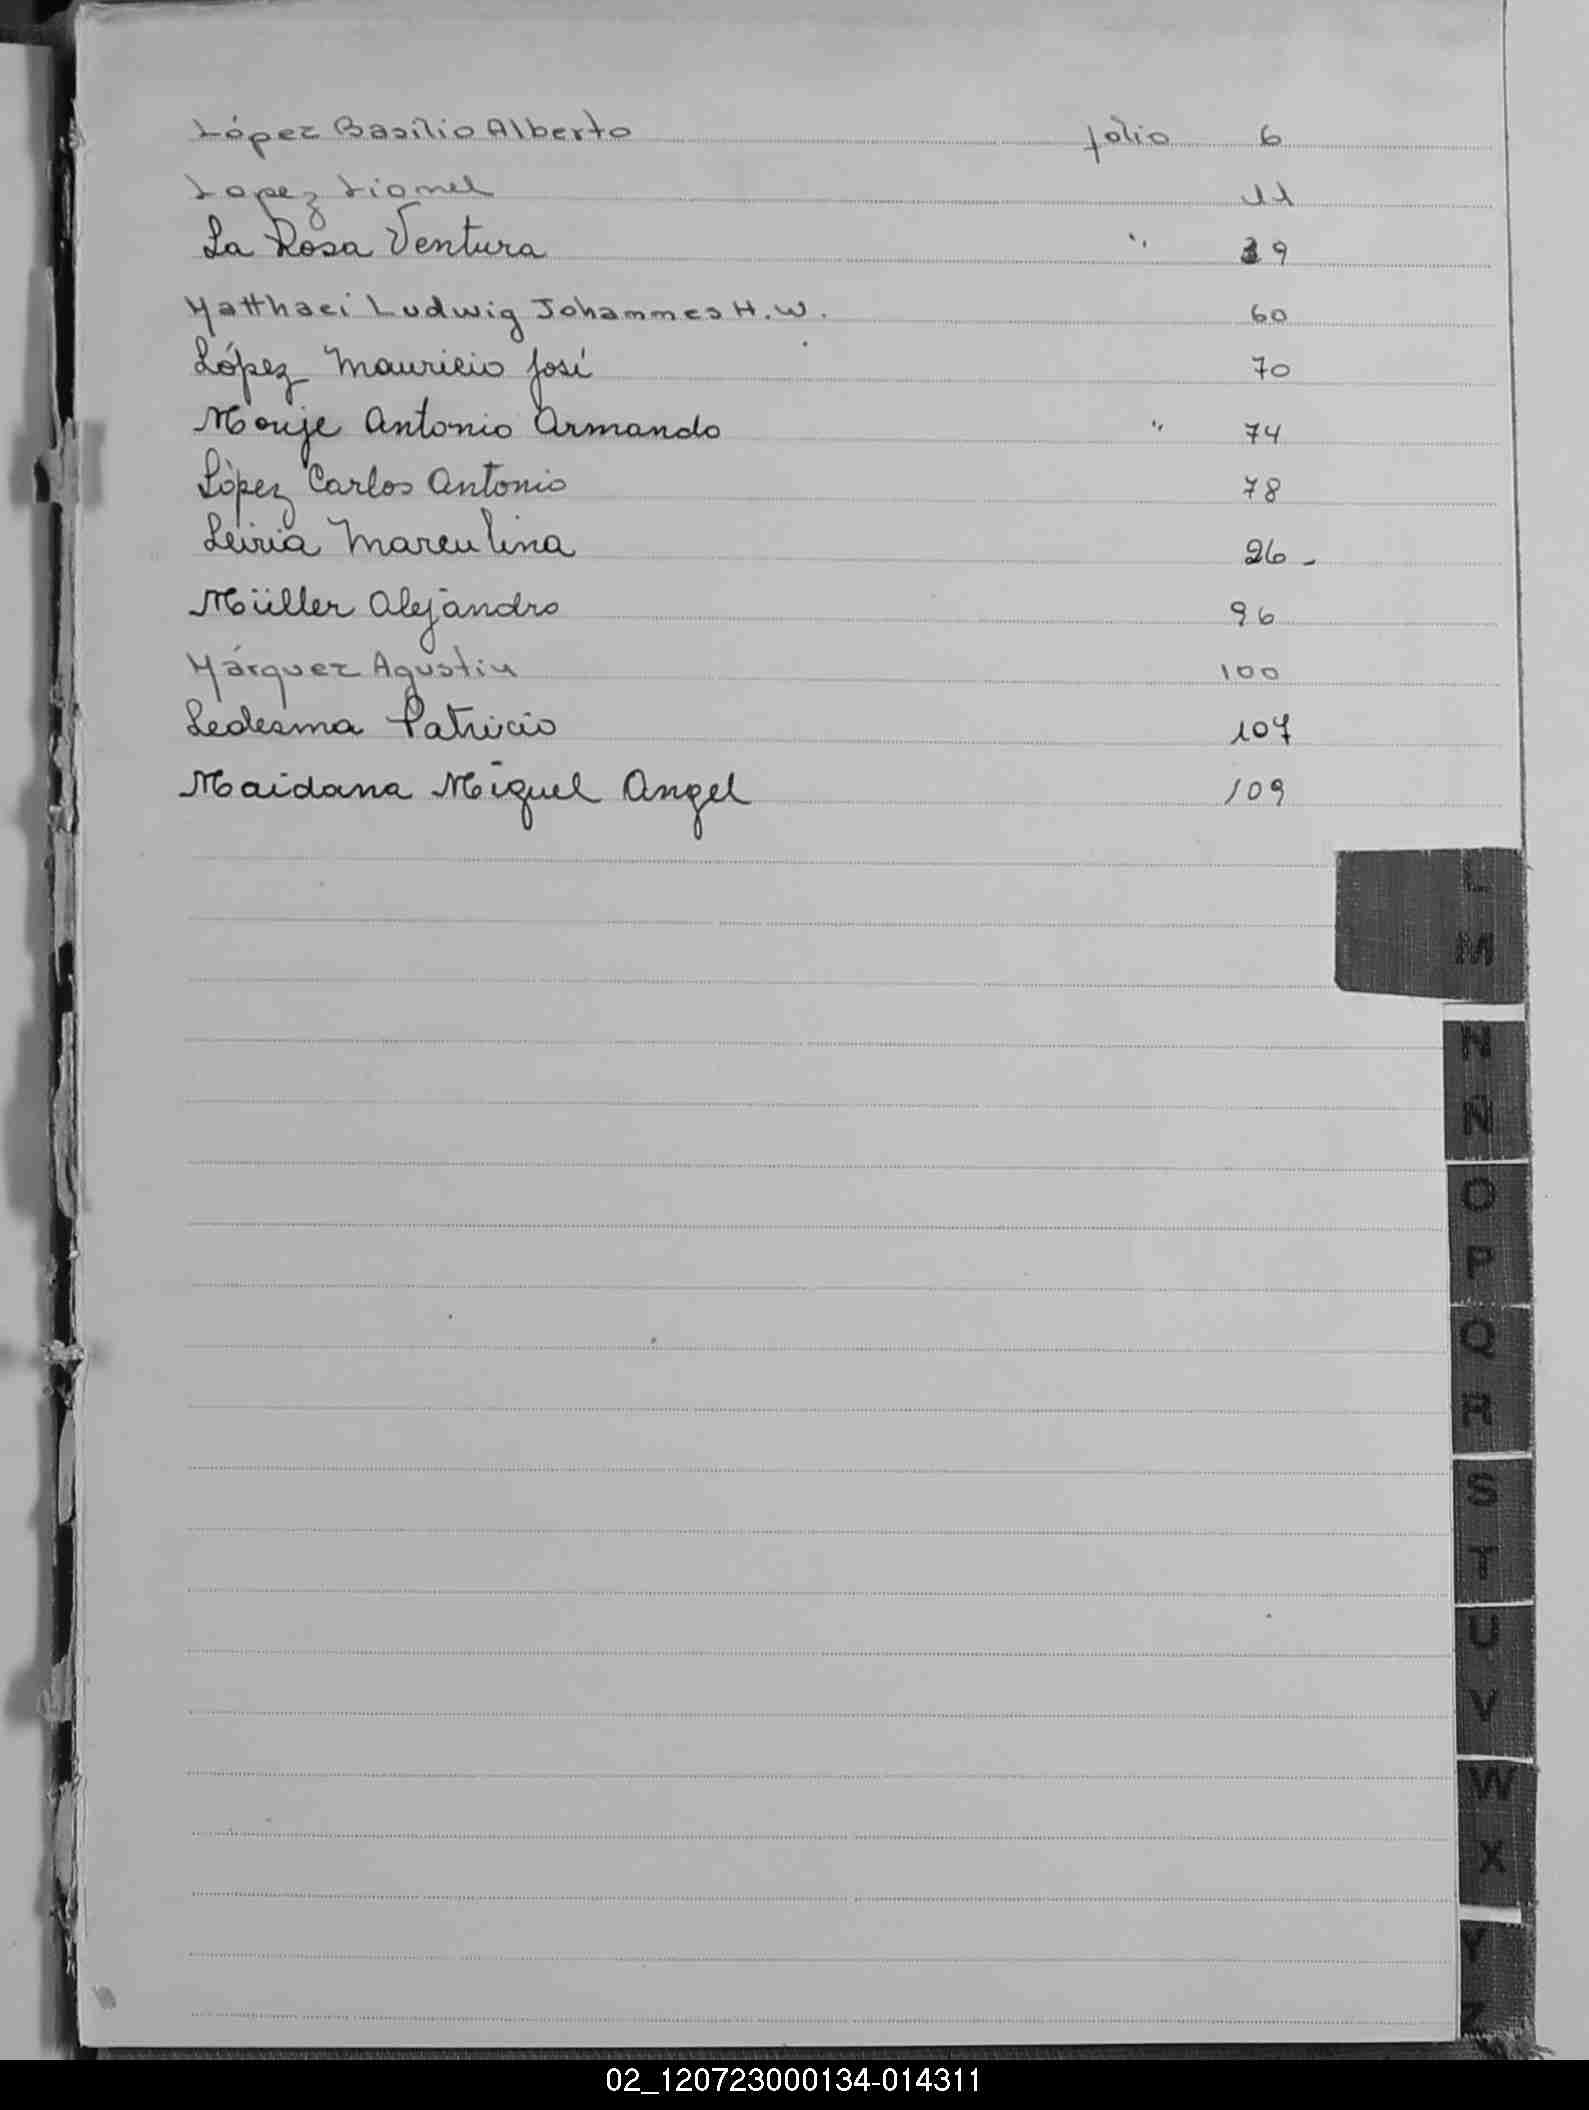 López Basilio Alberto folio 6
Lopez Lionel 11
La Rosa Ventura " 39
Matthaei Ludwig Johannnes H. W. 60
López Mauricio José 70
Monje Antonio Armando " 74
López Carlos Antonio 78
Leiria Marculina 26 -
Müller Alejandro 96
Márquez Agustin 100
Ledesma Patricio 107
Maidana Miguel Angel 109
L
M
N
Ñ
O
P
Q
R
S
T
U
V
W
X
Y
Z
02_120723000134-014311